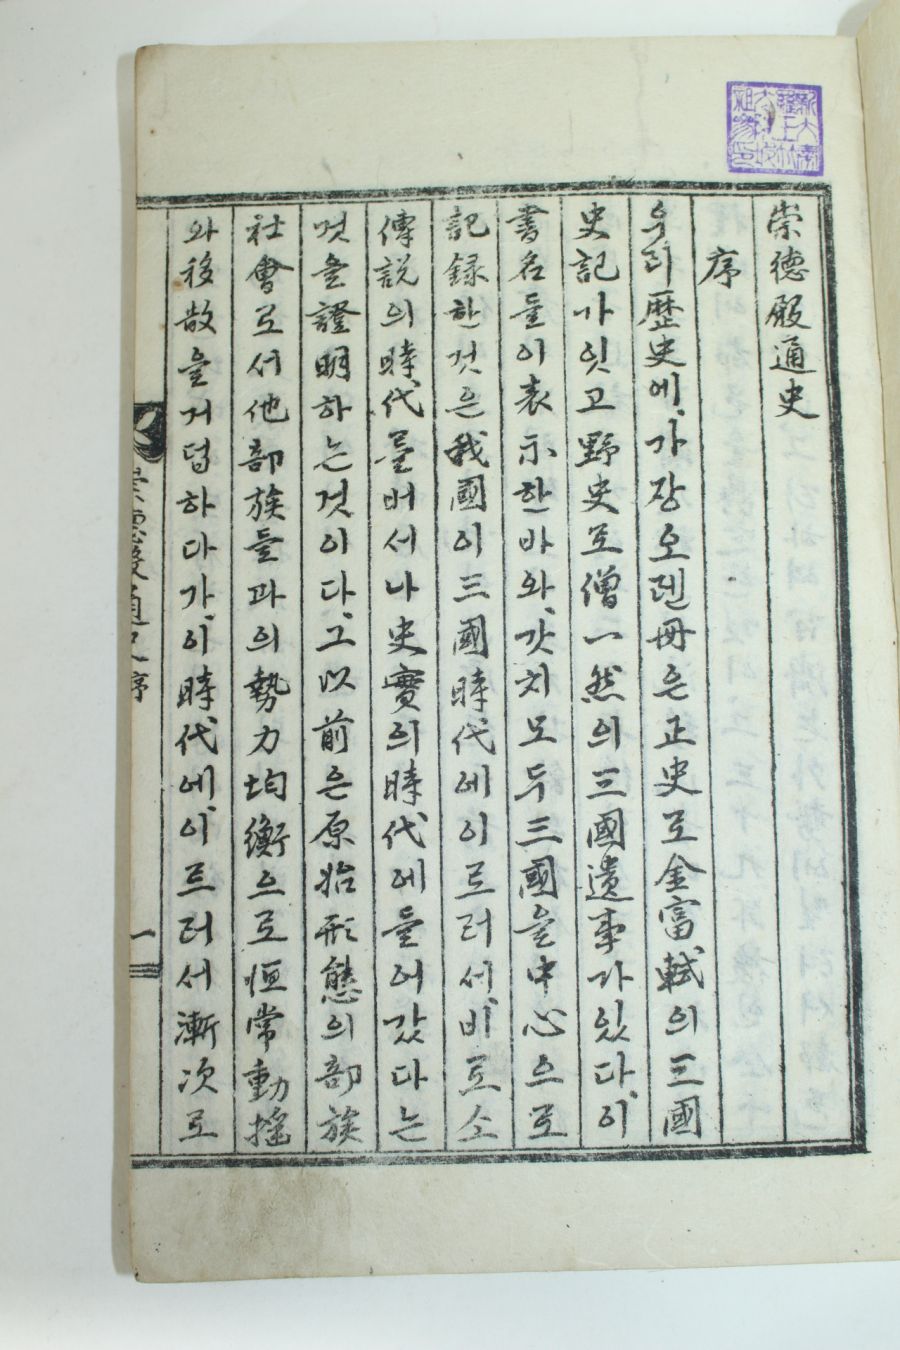 崇德殿通史
序
우리歷史에、가장오랜冊은正史로金富軾의三國
史記가잇고野史로僧一然의三國遺事가잇다、이
書名들이表示한바와、갓치모두三國을中心으로
記録한것은我國이三國時代에이르러서비로소
傳説의時代를버서나史實의時代에들어갔다는
것을證明하는것이다、그以前은原始形態의部族
社會로서他部族들과의勢力均衡으로恒常動搖
와移散을거듭하다가、이時代에、이르러서漸次로
崇德殿通史序
一